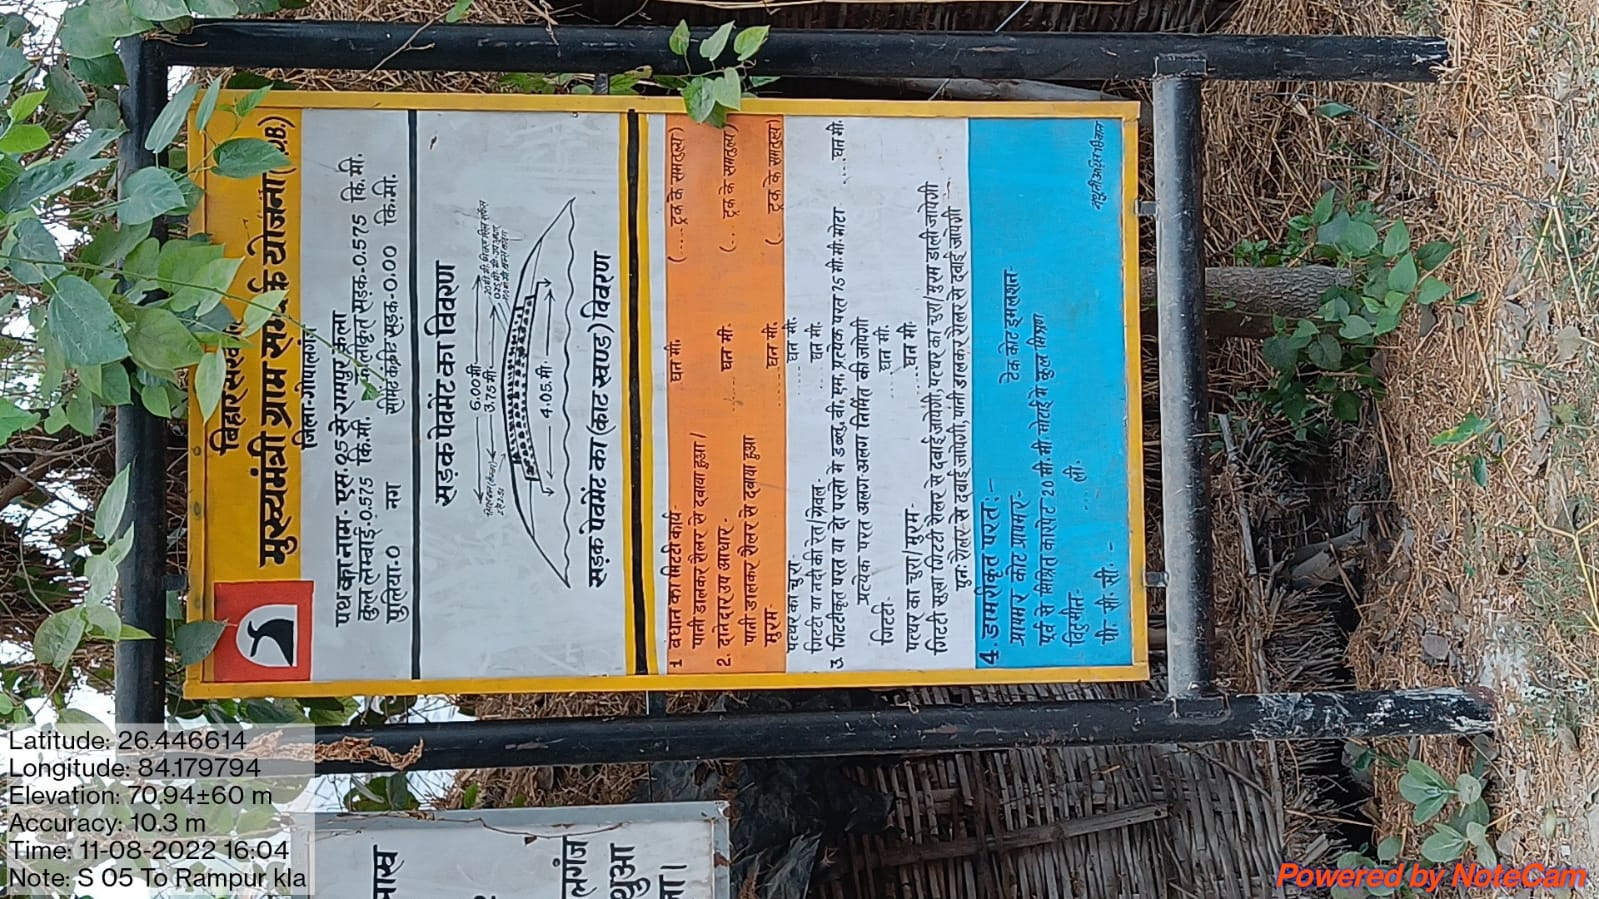 बिहार सरकार
मुख्यमंत्री ग्राम सड़क योजना
जिला-गोपालगंज
पथ का नाम- एस.05 से रामपुर कला
कुल लम्बाई-0.575 कि.मी. कालीकृत सड़क-0.575 कि.मी.
पुलिया-0 नग सीमेंट कंक्रीट सड़क-0.00 कि.मी.
सड़क पेवमेंट का विवरण
6.00 मी.
3.75 मी.
4.05 मी.
सड़क पेवमेंट का (काट खण्ड) विवरण
1 बंधान का मिटटी कार्य- घन मी. (... ट्रक के समतुल्य)
पानी डालकर रोलर से दबाया हुआ।
2. दानेदार उप आधार- घन मी. (... ट्रक के समतुल्य)
पानी डालकर रोलर से दबाया हुआ
मुरम- घन मी. (... ट्रक के समतुल्य)
पत्थर का चुरा- घन मी.
गिटटी या नदी की रेत/ग्रेवल- घन मी.
3 गिटटीकृत परत या दो परतो में डब्लु. बी. एम. प्रत्येक परत 75 मी.मी. मोटा घन मी.
प्रत्येक परत अलग-अलग निर्मित की जायेगी
गिटटी- घन मी.
पत्थर का चुरा/मुरम- घन मी.
गिटटी सुखा गिटटी रोलर से दबाई जायेगी, पत्थर का चुरा/मुरम डाली जायेगी
पुनः रोलर से दबाई जायेगी, पानी डालकर रोलर से दबाई जायेगी
4. डामरीकृत परत:-
प्राप्रमर कोट प्राप्रमर- टेक कोट इमलशन-
पूर्व से मिश्रित कारपेट 20 मी.मी. मोटाई में कुल मिश्रण
विटुमीन- ली.
पी. सी. सी. -
Latitude: 26.446614
Longitude: 84.179794
Elevation: 70.94±60 m
Accuracy: 10.3 m
Time: 11-08-2022 16:04
Note: S 05 To Rampur kla
लगंज
थुआ
Powered by NoteCam